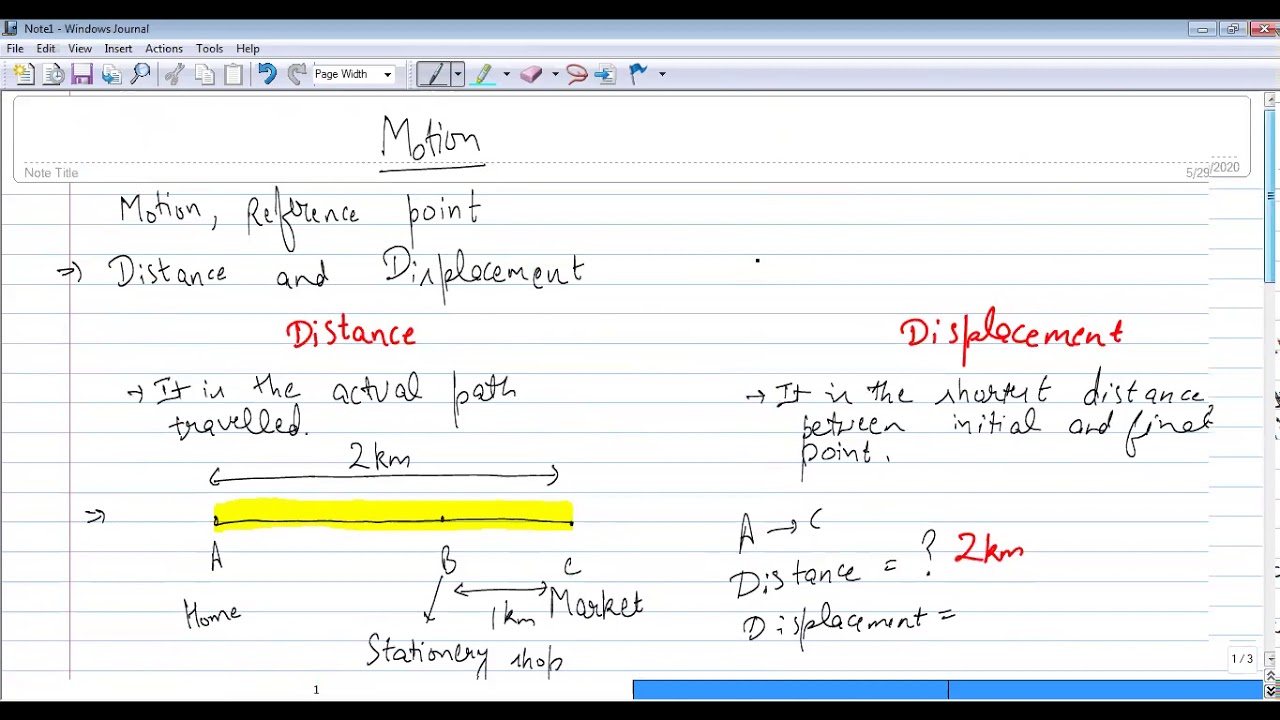 Note1 - Windows Journal
File Edit View Insert Actions Tools Help
Page Width
Motion
Note Title
5/29/2020
Motion, Reference point
=> Distance and Displacement
Distance
→ It is the actual path
travelled.
2km
=>
A B C
Home
1km
Market
Stationery shop
Displacement
→ It is the shortest distance
between initial and final
point.
A → C
Distance = ? 2km
Displacement =
1 / 3
1